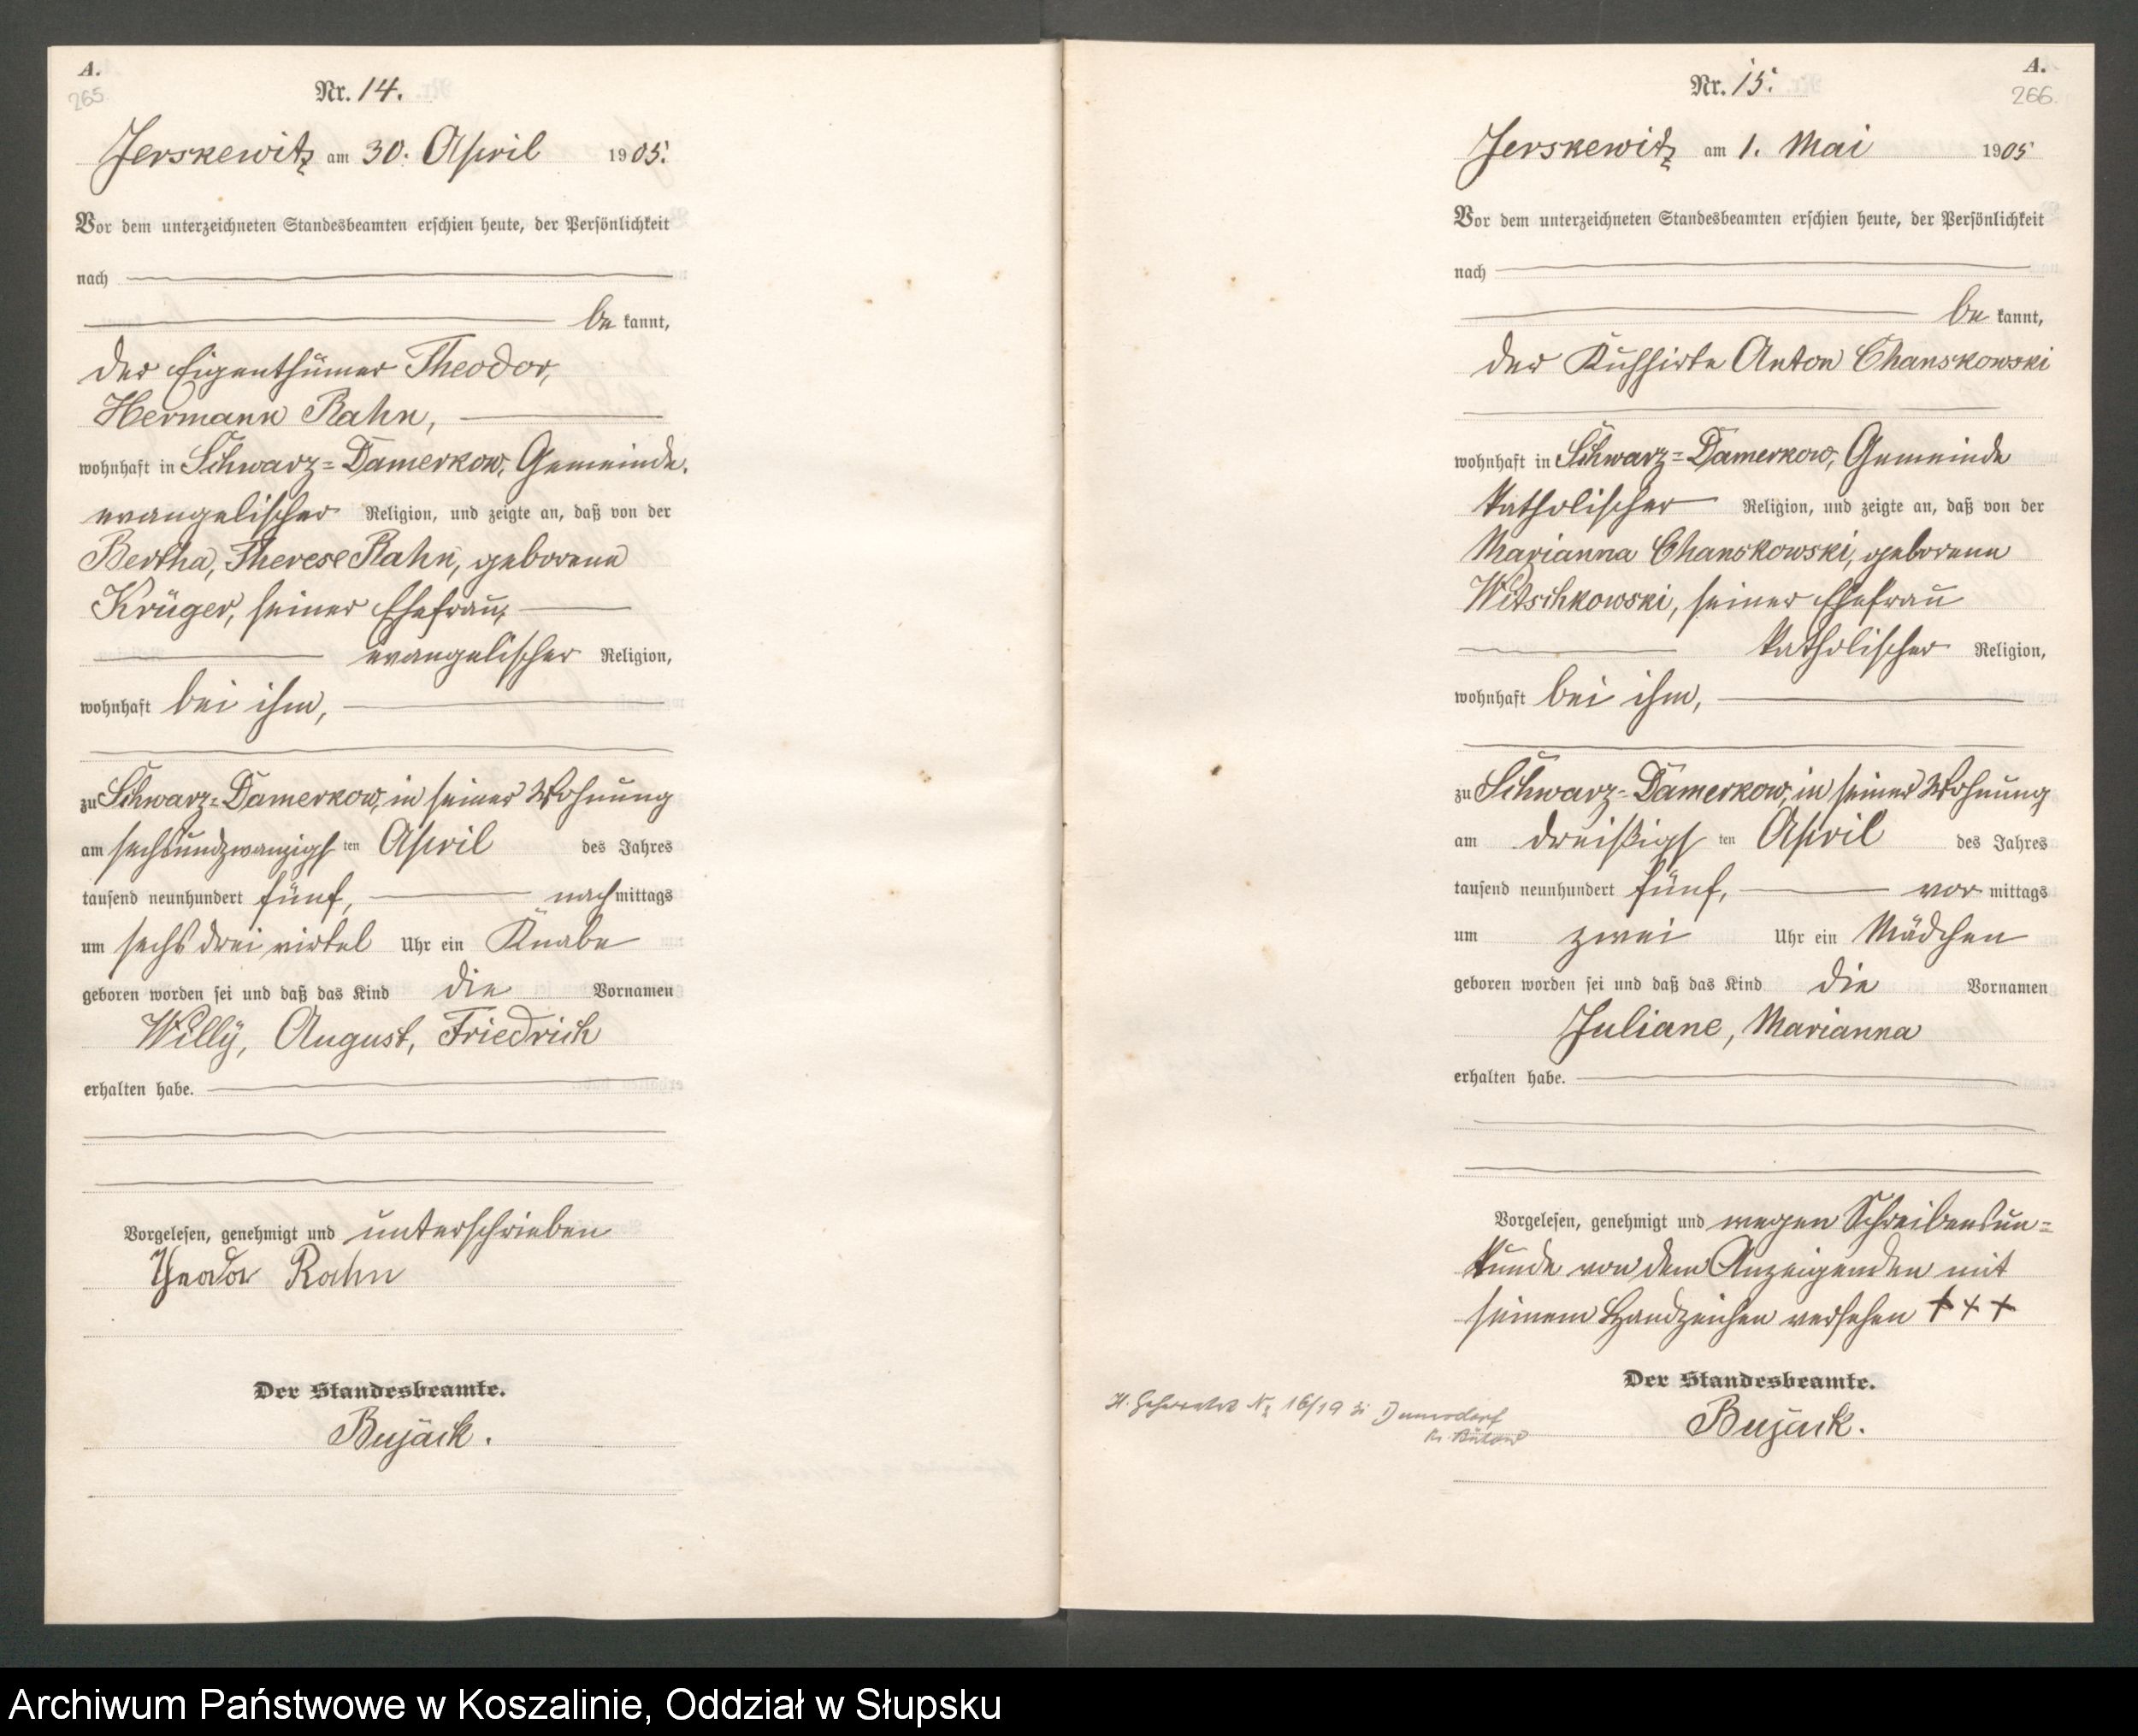 A.
265
Nr. 14.
Jerskewitz am 30. April 1905.
Vor dem unterzeichneten Standesbeamten erschien heute, der Persönlichkeit
nach
be kannt,
der Eigenthümer Theodor,
Hermann Rahn,
wohnhaft in Schwarz=Damerkow, Gemeinde.
evangelischer Religion, und zeigte an, daß von der
Bertha, Therese Rahn, geborene
Krüger, seiner Ehefrau,
evangelischer Religion,
wohnhaft bei ihm,
zu Schwarz=Damerkow, in seiner Wohnung
am sechsundzwanzigsten April des Jahres
tausend neunhundert fünf, nachmittags
um sechs drei virtel Uhr ein Knabe
geboren worden sei und daß das Kind die Vornamen
Willy, August, Friedrich
erhalten habe.
Vorgelesen, genehmigt und unterschrieben
Theodor Rahn
Der Standesbeamte.
Bujack.
A.
266
Nr. 15.
Jerskewitz am 1. Mai 1905
Vor dem unterzeichneten Standesbeamten erschien heute, der Persönlichkeit
nach
be kannt,
der Kuhhirte Anton Chanskowski
wohnhaft in Schwarz=Damerkow, Gemeinde
katholischer Religion, und zeigte an, daß von der
Marianna Chanskowski, geborene
Witschkowski, seiner Ehefrau
katholischer Religion,
wohnhaft bei ihm,
zu Schwarz=Damerkow, in seiner Wohnung
am dreißigsten April des Jahres
tausend neunhundert fünf, vor mittags
um zwei Uhr ein Mädchen
geboren worden sei und daß das Kind die Vornamen
Juliane, Marianna
erhalten habe.
Vorgelesen, genehmigt und wegen Schreibensun=
kunde von dem Anzeigenden mit
seinem Handzeichen versehen + + +
Der Standesbeamte.
Bujack.
16/19
Kr. Bütow
Archiwum Państwowe w Koszalinie, Oddział w Słupsku